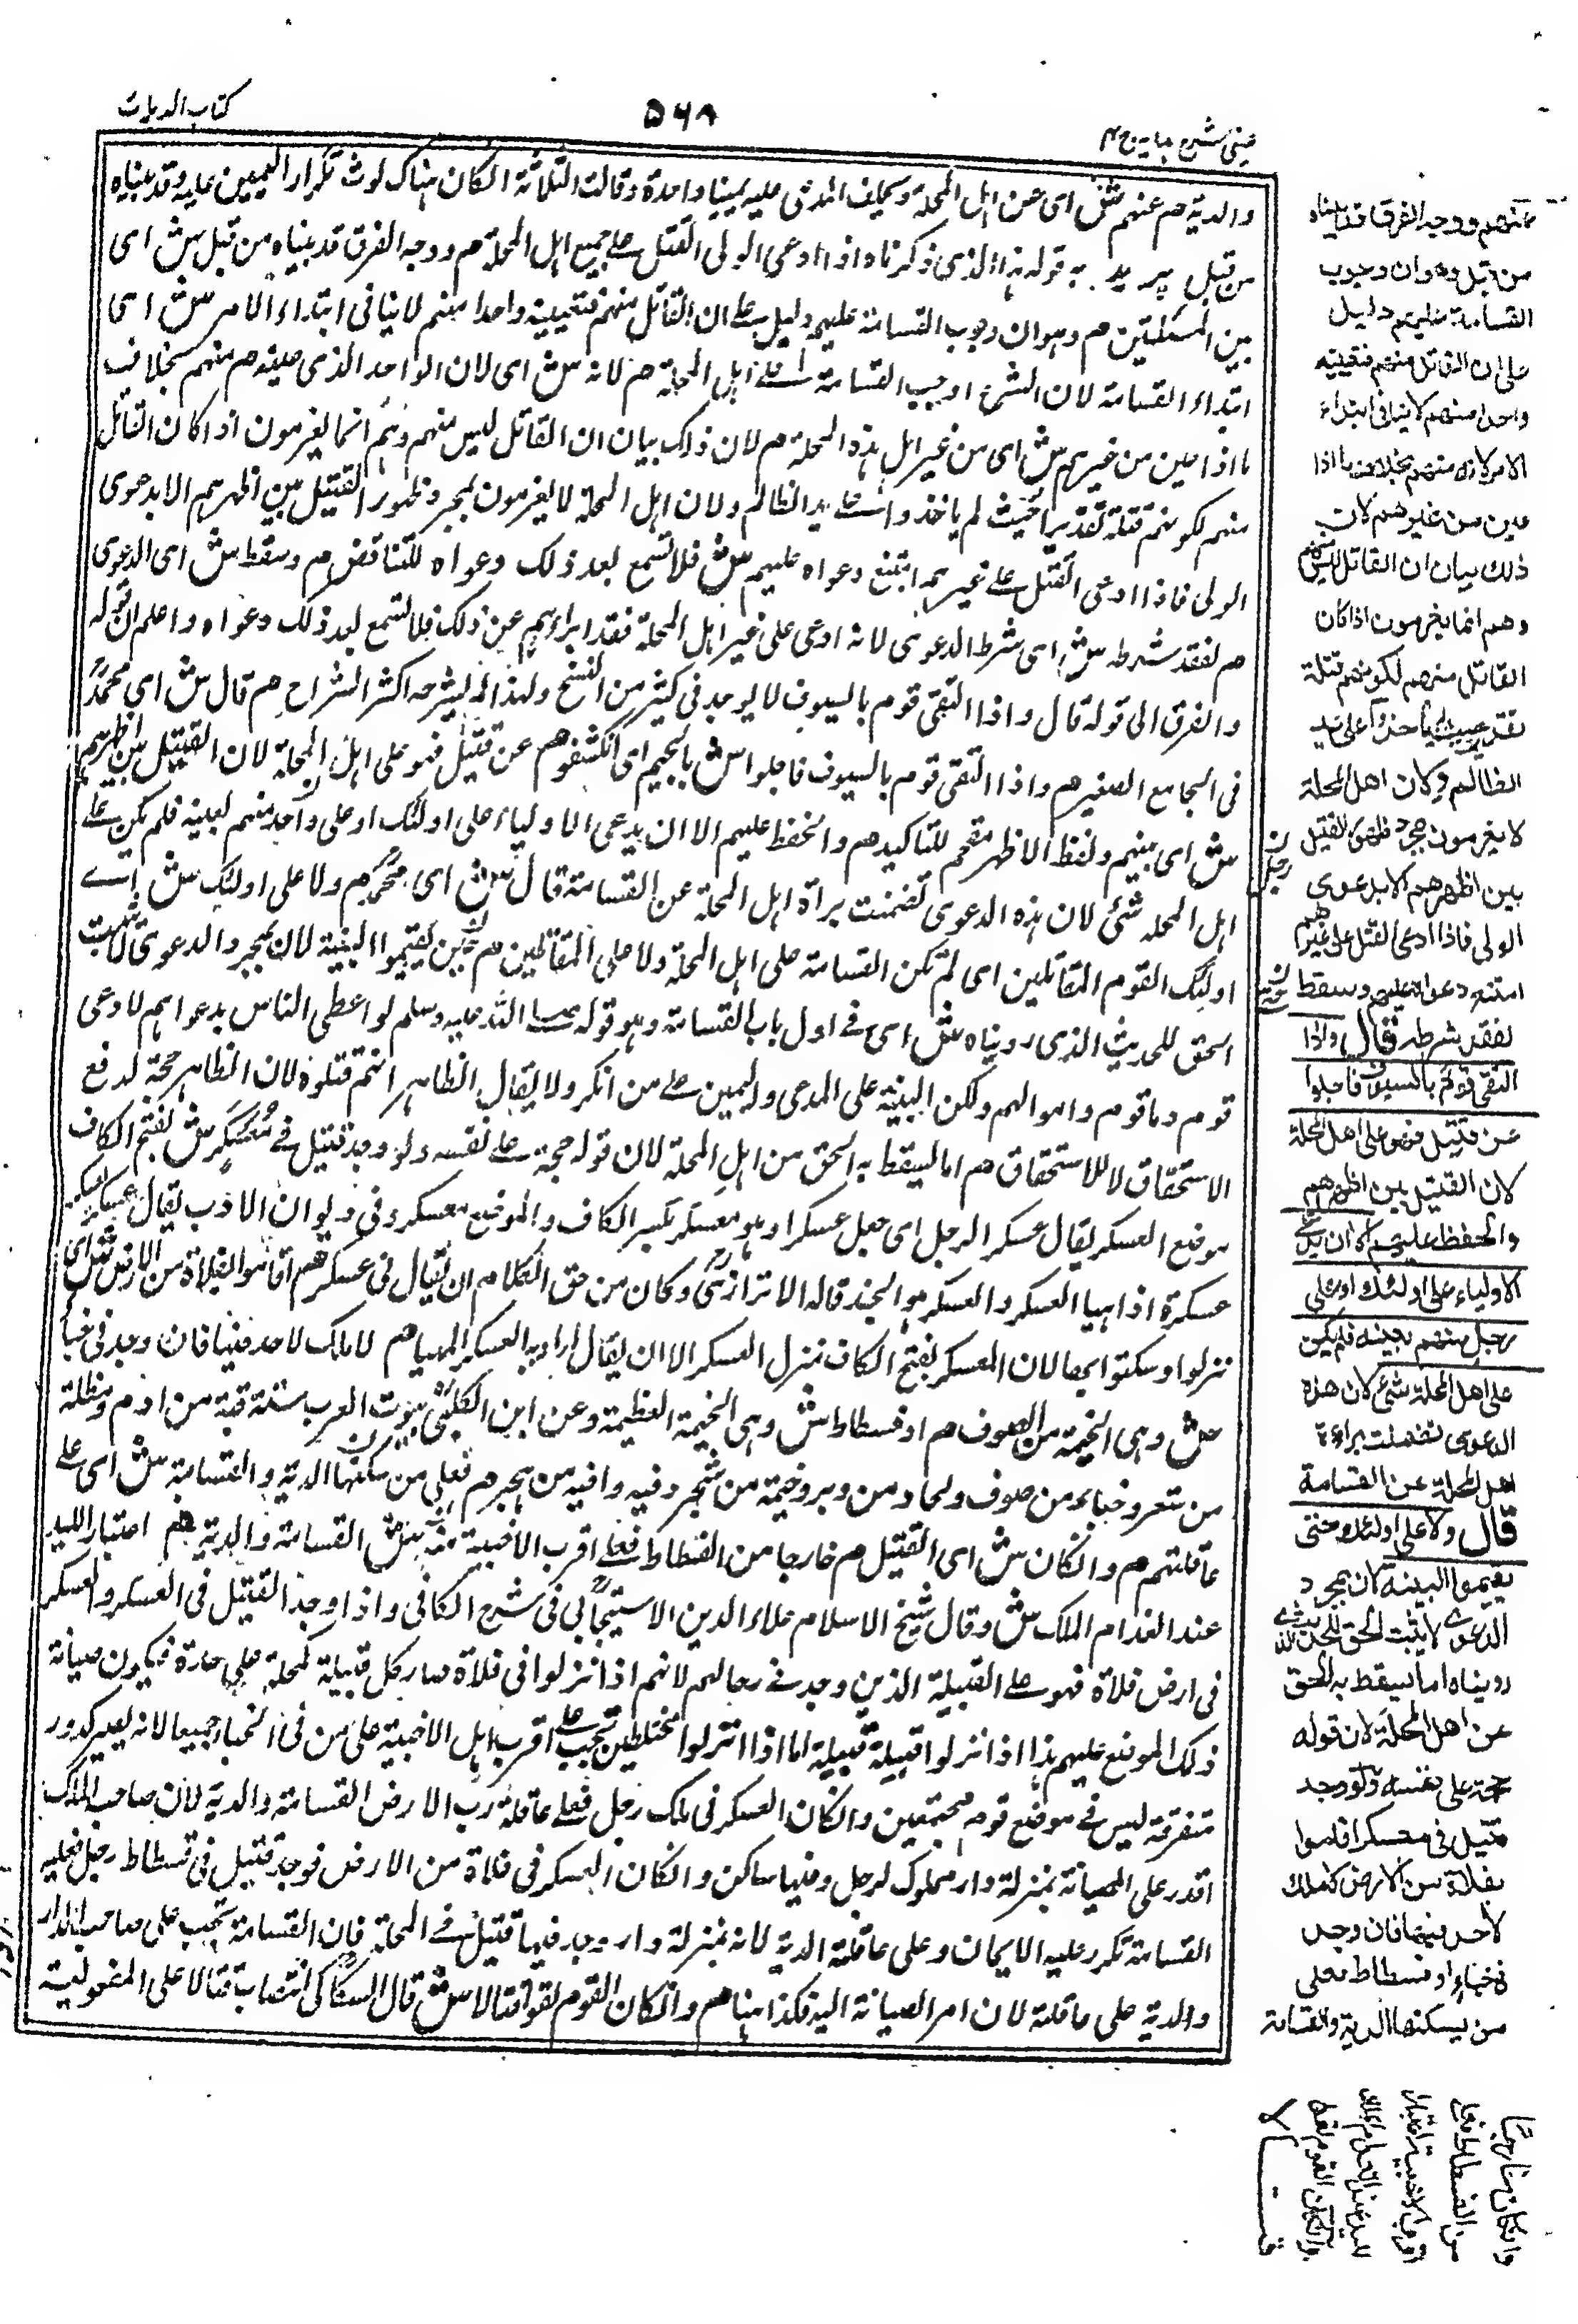 كتاب الديات
۵۶۸
عینی شرح ہدایہ ج ۴
والدية هم عنهم ش اى عن اہل المحلة ويحلف المدعى عليه يمينا واحدة وقالت الثلاثة انكان ہناك لوث تكرار اليمين عليه وقد بيناه
من قبل يريد به قوله ہذا الذى ذكرناه اذا ادعى الولى القتل على جميع اہل المحلة هم ووجه الفرق قد بيناه من قبل ش اى
بين المسئلتين هم وہوان وجوب القسامة عليهم دليل على ان القاتل منهم فتعيينه واحدا منهم لا ينافى ابتداء الامر ش اى
ابتداء القسامة لان الشرع اوجب القسامة على اہل المحلة هم لانه ش اى لان الواحد الذى عينه هم منهم بخلاف
ما اذا عين من غيرهم ش اى من غير اہل ہذه المحلة هم لان ذلك بيان ان القاتل ليس منهم وہم انما يغرمون اذا كان القاتل
منهم لكونهم قتلة تقديرا حيث لم ياخذوا على يد الظالم ولان اہل المحلة لا يغرمون بمجرد ظهور القتيل بين اظهرہم الا بدعوى
الولى فاذا ادعى القتل على غيرہم امتنع دعواه عليهم ش فلا تسمع بعد ذلك دعواه للتناقض هم وسقط ش اى الدعوى
هم لفقد شرطه ش اى شرط الدعوى لانه ادعى على غير اہل المحلة فقد ابراءہم عن ذلك فلا تسمع بعد ذلك دعواه واعلم ان قوله
والفرق الى قوله قال واذا التقى قوم بالسيوف لا يوجد فى كثير من النسخ ولهذا لم يشرحه اكثر الشراح هم قال ش اى محمد
فى الجامع الصغير هم واذا التقى قوم بالسيوف فاجلوا ش بالجيم اى انكشفوا هم عن قتيل فهو على اہل المحلة لان القتيل بين اظهرہم
ش اى بينهم ولفظ الاظهر مقحم للتاكيد هم والحفظ عليهم الا ان يدعى الاولياء على اولئك او على واحد منهم بعينه فلم يكن على
اہل المحله شئ لان ہذه الدعوى تضمنت براة اہل المحلة عن القسامة قال ش اى محمد هم ولا على اولئك ش اى
اولئك القوم المتقاتلين اى لم تكن القسامة على اہل المحلة ولا على المتقاتلين هم حتى يقيموا البينة لان بمجرد الدعوى لا يثبت
الحق للحديث الذى رويناه ش اى فى اول باب القسامة وہو قوله صلى الله عليه وسلم لو اعطى الناس بدعواہم لادعى
قوم دماء قوم واموالهم ولكن البينة على المدعى واليمين على من انكر ولا يقال الظاہر انهم قتلوه لان الظاہر حجة لدفع
الاستحقاق لا للاستحقاق هم اما يسقط به الحق من اہل المحلة لان قوله حجة على نفسه ولو وجد قتيل فى معسكر ش بفتح الكاف
موضع العسكر يقال عسكر الرجل اى جعل عسكرا وہو معسكر بكسر الكاف والموضع معسكر وفى ديوان الادب يقال عسكر
عسكرة اذا ہيا العسكر والعسكر ہو الجند قاله الاترازى وكان من حق الكلام ان يقال فى عسكر هم اقاموا بفلاة من الارض ش اى
نزلوا وسكنوا بها لان المعسكر بفتح الكاف منزل العسكر الا ان يقال اراد به العسكر المهيا هم لا ملك لاحد فيها فان وجد فى خباء
ش وہى الخيمة من الصوف هم او فسطاط ش وہى الخيمة العظيمة وعن ابن الكلبى بيوت العرب ستة قبة من ادم ومظلة
من شعر وخباء من صوف ولجاد من وبر وخيمة من شجر وفيه واقيه من حجر هم فعلى من يسكنها الدية والقسامة ش اى على
عاقلتهم هم وان كان ش اى القتيل هم خارجا من الفسطاط فعلى اقرب الاخبية منه ش القسامة والدية هم اعتبار اليد
عند انعدام الملك ش وقال شيخ الاسلام علاء الدين الاسبيجابى فى شرح الكافى واذا وجد القتيل فى العسكر والعسكر
فى ارض فلاة فهو على القبيلة الذين وجد فى رحالهم لانهم اذا نزلوا فى فلاة صار كل قبيلة كمحلة على حدة فيكون صيانة
ذلك الموضع عليهم ہذا اذا نزلوا قبيلة قبيلة اما اذا نزلوا مختلطين تجب على اقرب اہل الاخبية على من فى الخباء جميعا لانه يعتبر كدور
متفرقة ليس فى موضع قوم مجتمعين وان كان العسكر فى ملك رجل فعلى عاقلة رب الارض القسامة والدية لان صاحب الملك
اقدر على الصيانة بمنزلة دار مملوك لرجل وفيها ساكن وان كان العسكر فى فلاة من الارض فوجد قتيل فى فسطاط رجل فعليه
القسامة تكرر عليه الايمان وعلى عاقلته الدية لانه بمنزلة دار وجد فيها قتيل فى المحلة فان القسامة تجب على صاحب الدار
والدية على عاقلته لان امر الصيانة اليه فكذا ہنا هم وان كان القوم لقوا قتالا ش قال السكاكى انتصاب قتالا على المفعولية
عنهم ووجه الفرق قد بيناه
من قبل وهو ان وجوب
القسامة عليهم دليل
على ان القاتل منهم فتعيينه
واحدا منهم لا ينافى ابتداء
الامر لانه منهم بخلاف ما اذا
عين من غيرهم لان
ذلك بيان ان القاتل ليس منهم
وهم انما يغرمون اذا كان
القاتل منهم لكونهم قتلة
تقديرا حيث لم ياخذوا على يد
الظالم ولان اهل المحلة
لا يغرمون بمجرد ظهور القتيل
بين اظهرهم الا بدعوى
الولى فاذا ادعى القتل على غيرهم
امتنع دعواه عليهم وسقط
لفقد شرطه قال واذا
التقى قوم بالسيوف فاجلوا
عن قتيل فهو على اهل المحلة
لان القتيل بين اظهرهم
والحفظ عليهم الا ان يدعى
الاولياء على اولئك او على
رجل منهم بعينه فلم يكن
على اهل المحلة شئ لان هذه
الدعوى تضمنت براءة
اهل المحلة عن القسامة
قال ولا على اولئك حتى
يقيموا البينة لان بمجرد
الدعوى لا يثبت الحق للحديث الذى
رويناه اما يسقط به الحق
عن اهل المحلة لان قوله
حجة على نفسه ولو وجد
قتيل فى معسكر اقاموا
بفلاة من الارض لا ملك
لاحد فيها فان وجد
فى خباء او فسطاط فعلى
من يسكنها الدية والقسامة
وان كان خارجا
من الفسطاط فعلى
اقرب الاخبية اعتبارا
لليد عند انعدام الملك
وان كان القوم لقوا
قتالا